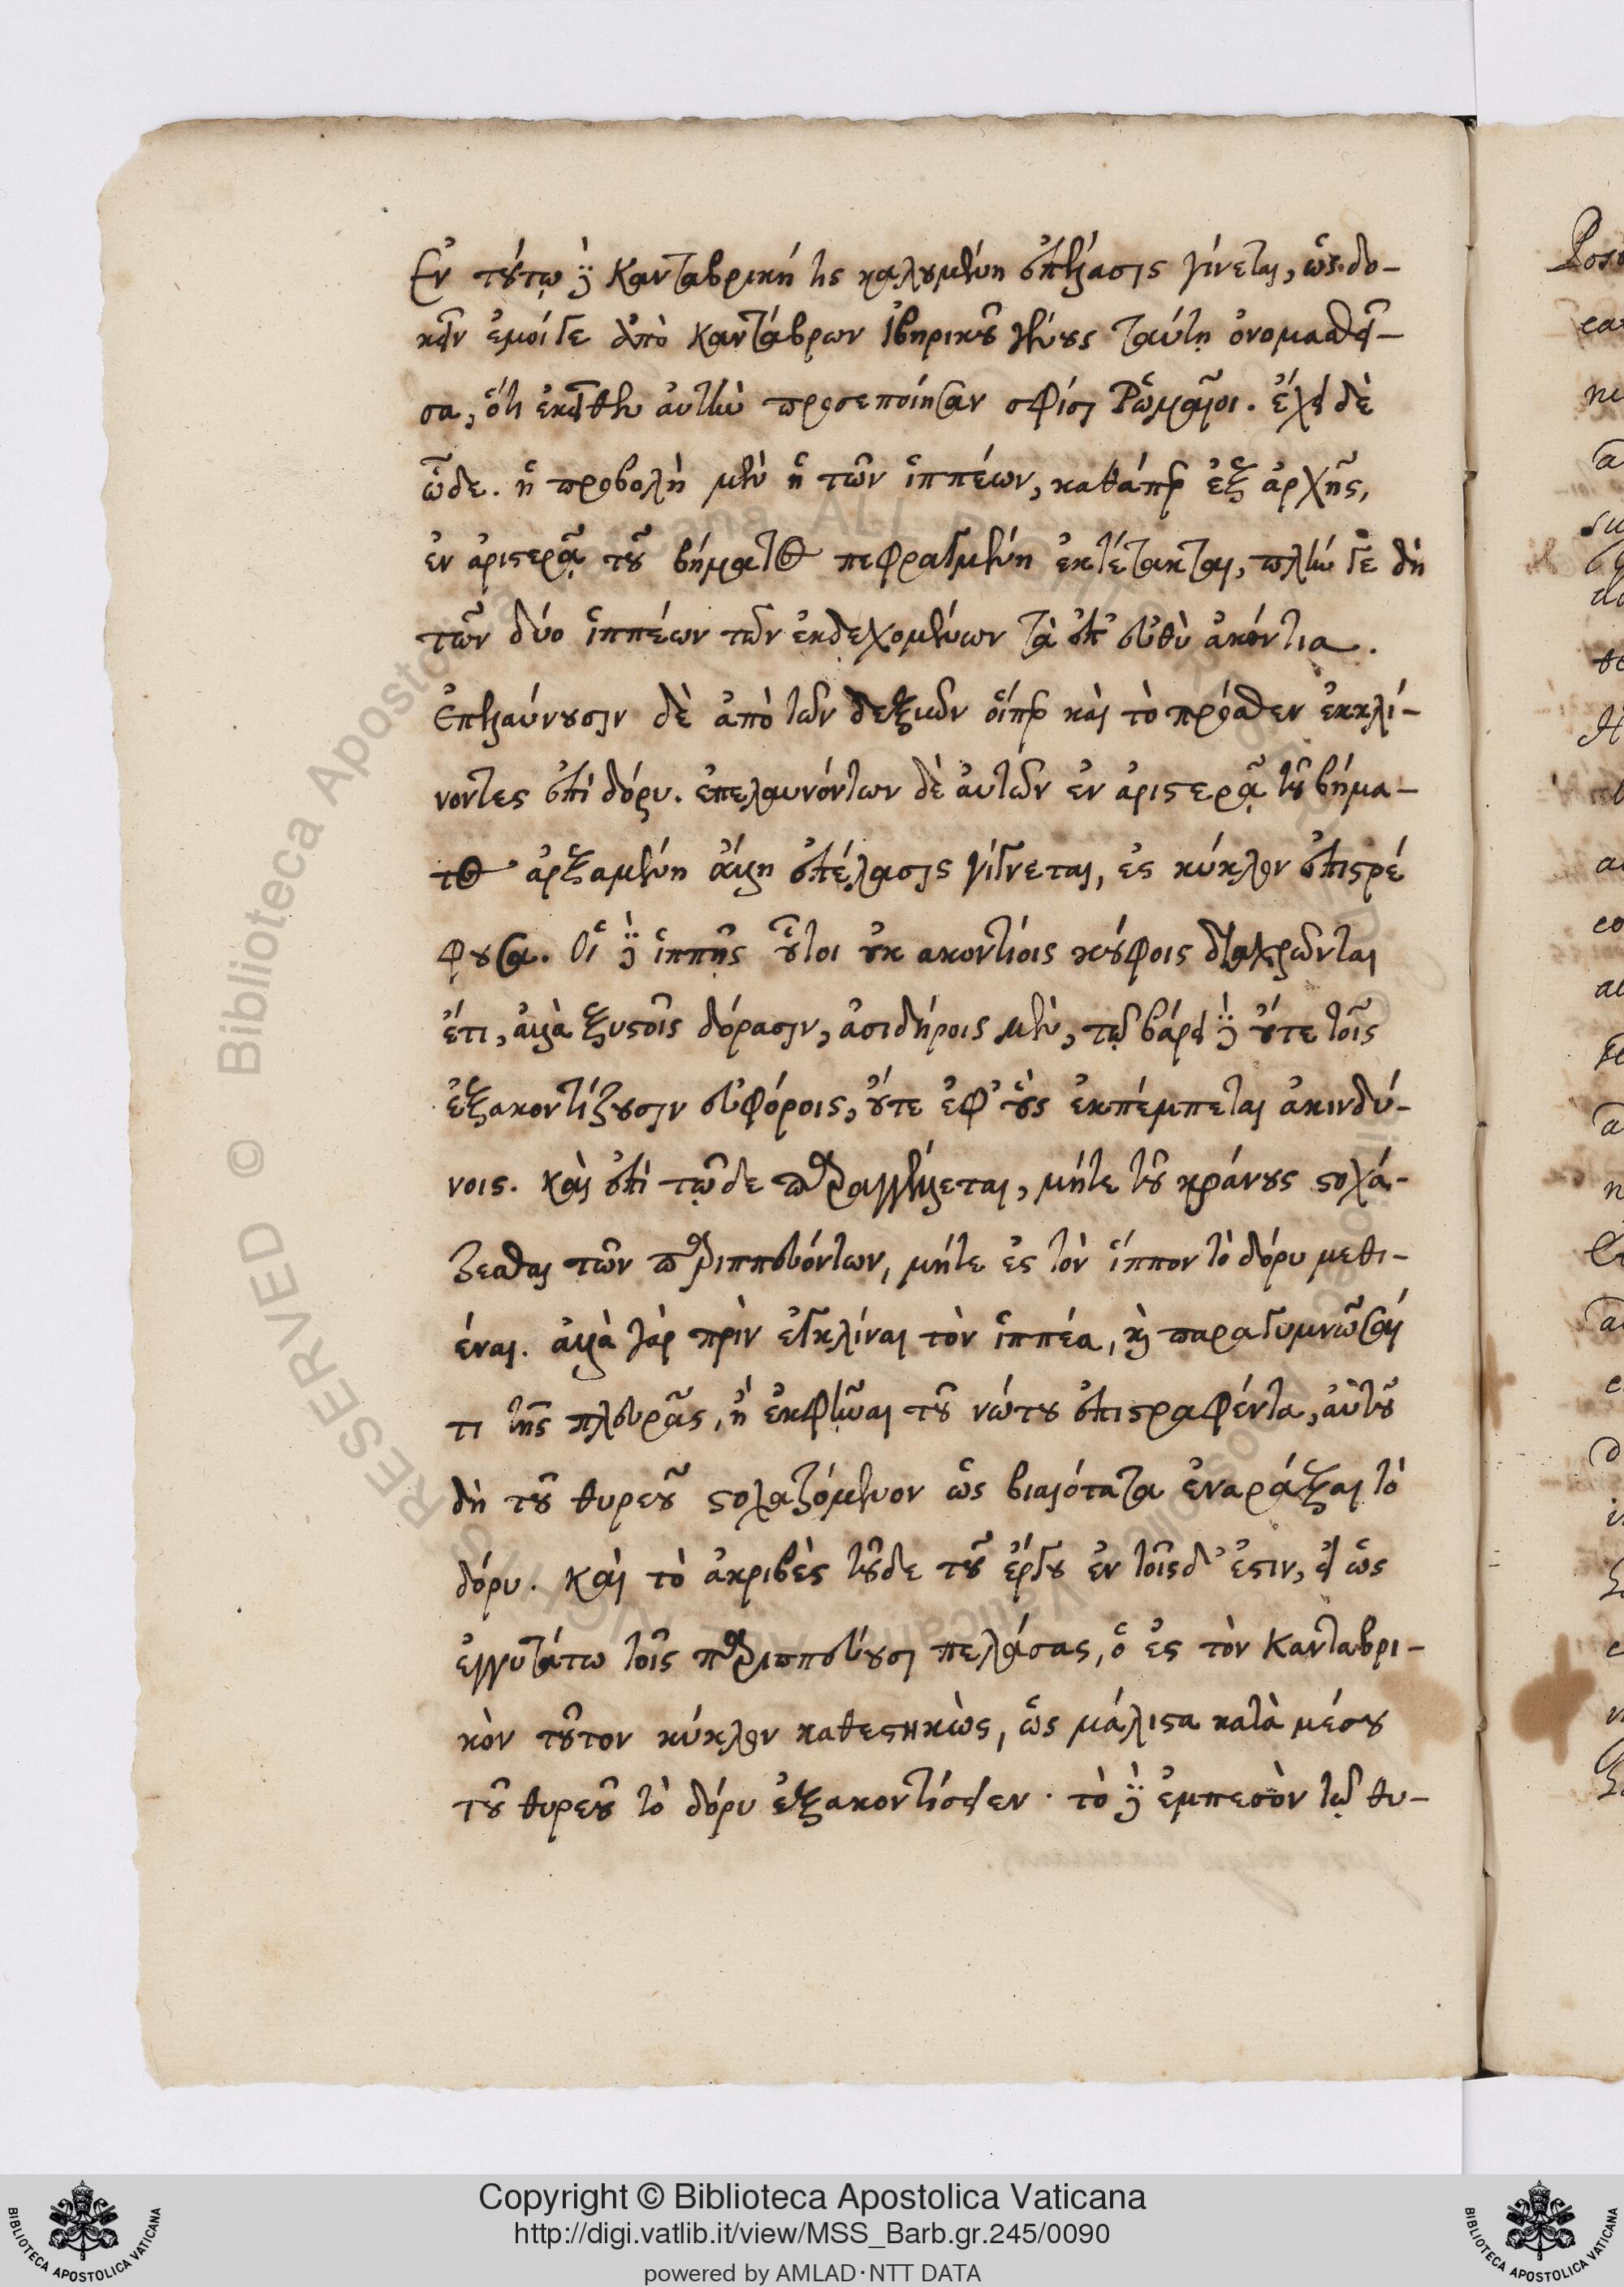 Ἐν τούτῳ δὲ Κανταβρική τις καλουμένη ἐπέλασις γίνεται, ὡς δο-
κεῖν ἐμοί γε ἀπὸ Καντάβρων Ἰβηρικοῦ γένους ταύτῃ ὀνομασθεῖ-
σα, ὅτι ἐκεῖθεν αὐτὴν προσεποίησαν σφίσι Ῥωμαῖοι. ἔχει δὲ
ὧδε. ἡ προβολὴ μὲν ἡ τῶν ἱππέων, καθάπερ ἐξ ἀρχῆς,
ἐν ἀριστερᾷ τοῦ βήματος πεφραγμένη ἐκτέτακται, πλήν γε δὴ
τῶν δύο ἱππέων τῶν ἐκδεχομένων τὰ ἐπ' εὐθὺ ἀκόντια.
Ἐπελαύνουσιν δὲ ἀπὸ τῶν δεξιῶν οἵπερ καὶ τὸ πρόσθεν ἐκκλί-
νοντες ἐπὶ δόρυ. ἐπελαυνόντων δὲ αὐτῶν ἐν ἀριστερᾷ τοῦ βήμα-
τος ἀρξαμένη ἄλλη ἐπέλασις γίγνεται, ἐς κύκλον ἐπιστρέ
φουσα. Οἱ δὲ ἱππῆς οὗτοι οὐκ ακοντίοις κούφοις διαχρῶνται
ἔτι, ἀλλὰ ξυστοῖς δόρασιν, ἀσιδήροις μὲν, τῷ βάρει δὲ οὔτε τοῖς
ἐξακοντίζουσιν εὐφόροις, οὔτε ἐφ' οὓς ἐκπέμπεται ἀκινδύ-
νοις. καὶ ἐπὶ τῷδε παραγγέλλεται, μήτε τοῦ κράνους στοχά-
ζεσθαι τῶν παριππευόντων, μήτε ἐς τὸν ἵππον τὸ δόρυ μεθι-
έναι. ἀλλὰ γὰρ πρὶν ἐγκλίναι τὸν ἱππέα, καὶ παραγυμνῶσαί
τι τῆς πλευρᾶς, ἢ ἐκφῆναι τοῦ νώτου ἐπιστραφέντα, αὐτοῦ
δὴ τοῦ θυρεοῦ στοχαζόμενον ὡς βιαιότατα ἐναράξαι τὸ
δόρυ. καὶ τὸ ἀκριβὲς τοῦδε τοῦ ἔργου ἐν τοῖςδ' ἐστιν, εἰ ὡς
ἐγγυτάτω τοῖς παριππεύουσι πελάσας, ὁ ἐς τὸν Κανταβρι-
κὸν τοῦτον κύκλον καθεστηκὼς, ὡς μάλιστα κατὰ μέσου
τοῦ θυρεοῦ τὸ δόρυ ἐξακοντίσειεν· τὸ δὲ ἐμπεσὸν τῷ θυ-
Copyright © Biblioteca Apostolica Vaticana
http://digi.vatlib.it/view/MSS_Barb.gr.245/0090
powered by AMLAD·NTT DATA